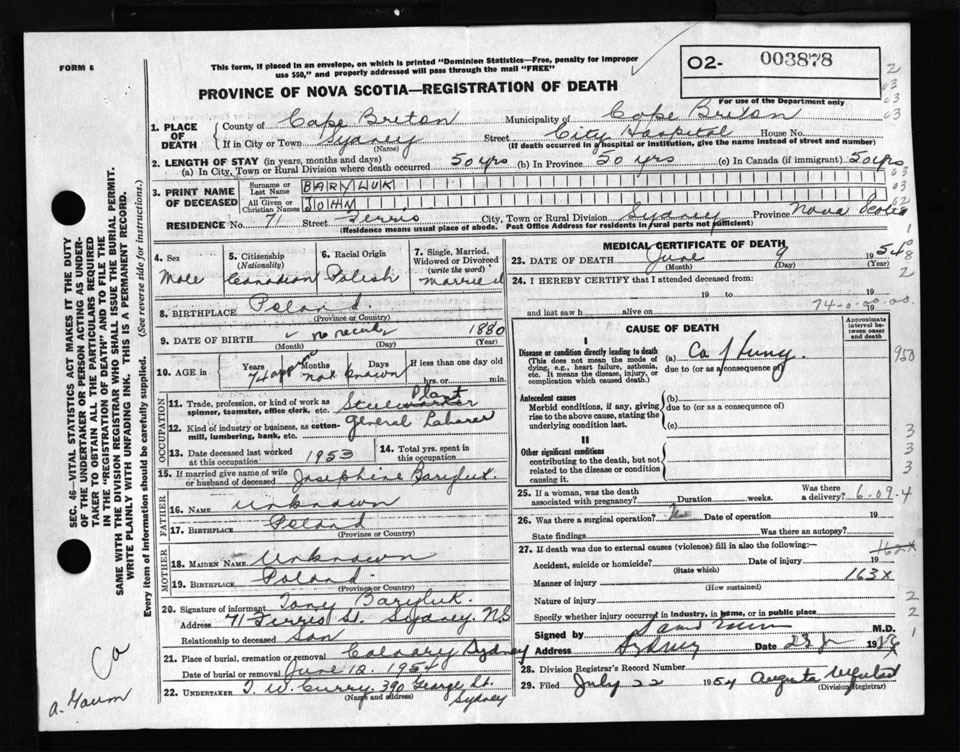 FORM 6
This form, if placed in an envelope, on which is printed "Dominion Statistics—Free, penalty for improper
use $50," and properly addressed will pass through the mail "FREE"
PROVINCE OF NOVA SCOTIA—REGISTRATION OF DEATH
O2- 003878
For use of the Department only
1. PLACE OF DEATH
County of Cape Breton Municipality of Cape Breton
If in City or Town Sydney Street City Hospital House No.
(Name) (If death occurred in a hospital or institution, give the name instead of street and number)
2. LENGTH OF STAY (in years, months and days)
(a) In City, Town or Rural Division where death occurred 50 yrs (b) In Province 50 yrs (c) In Canada (if immigrant) 50 yrs
3. PRINT NAME OF DECEASED
Surname or Last Name BARYLUK
All Given or Christian Names JOHN
RESIDENCE No. 71 Street Ferris City, Town or Rural Division Sydney Province Nova Scotia
(Residence means usual place of abode. Post Office Address for residents in rural parts not sufficient)
4. Sex Male
5. Citizenship (Nationality) Canadian
6. Racial Origin Polish
7. Single, Married, Widowed or Divorced (write the word) Married
8. BIRTHPLACE Poland
(Province or Country)
9. DATE OF BIRTH no record 1880
(Month) (Day) (Year)
10. AGE in Years Months Days If less than one day old
74 not known hrs. or min.
OCCUPATION
11. Trade, profession, or kind of work as spinner, teamster, office clerk, etc. Steel Plant worker
12. Kind of industry or business, as cotton-mill, lumbering, bank, etc. general Laborer
13. Date deceased last worked at this occupation 1953
14. Total yrs. spent in this occupation
15. If married give name of wife or husband of deceased Josephine Baryluk.
FATHER
16. NAME Unknown
17. BIRTHPLACE Poland
(Province or Country)
MOTHER
18. MAIDEN NAME Unknown
19. BIRTHPLACE Poland.
(Province or Country)
20. Signature of informant Tony Baryluk.
Address 71 Ferris St. Sydney, N.S
Relationship to deceased Son
21. Place of burial, cremation or removal Calvary Sydney
Date of burial or removal June 12. 1954
22. UNDERTAKER T. W. Curry 390 George St.
(Name and address) Sydney
MEDICAL CERTIFICATE OF DEATH
23. DATE OF DEATH June 9 1954
(Month) (Day) (Year)
24. I HEREBY CERTIFY that I attended deceased from:
19 to 19
and last saw h alive on
74-0-00-00.
CAUSE OF DEATH
Approximate interval between onset and death
I
Disease or condition directly leading to death (a) Ca of Lung.
(This does not mean the mode of dying, e.g., heart failure, asthenia, etc. It means the disease, injury, or complication which caused death.)
due to (or as a consequence of)
Antecedent causes (b)
Morbid conditions, if any, giving rise to the above cause, stating the underlying condition last.
due to (or as a consequence of)
(c)
II
Other significant conditions
contributing to the death, but not related to the disease or condition causing it.
25. If a woman, was the death associated with pregnancy? Duration weeks. Was there a delivery?
6-07-4
26. Was there a surgical operation? N Date of operation 19
State findings Was there an autopsy?
27. If death was due to external causes (violence) fill in also the following:—
162x
Accident, suicide or homicide? Date of injury 19
(State which)
163x
Manner of injury
(How sustained)
Nature of injury
Specify whether injury occurred in industry, in home, or in public place
Signed by M.D.
Address Sydney Date 19
28. Division Registrar's Record Number
29. Filed July 22 1954 Augusta
(Division Registrar)
SEC. 46—VITAL STATISTICS ACT MAKES IT THE DUTY
OF THE UNDERTAKER OR PERSON ACTING AS UNDER-
TAKER TO OBTAIN ALL THE PARTICULARS REQUIRED
IN THE "REGISTRATION OF DEATH" AND TO FILE THE
SAME WITH THE DIVISION REGISTRAR WHO SHALL ISSUE THE BURIAL PERMIT.
WRITE PLAINLY WITH UNFADING INK. THIS IS A PERMANENT RECORD.
Every item of information should be carefully supplied. (See reverse side for instructions.)
Ca
2
03
03
03
02
1
8
2
950
3
3
3
2
2
1